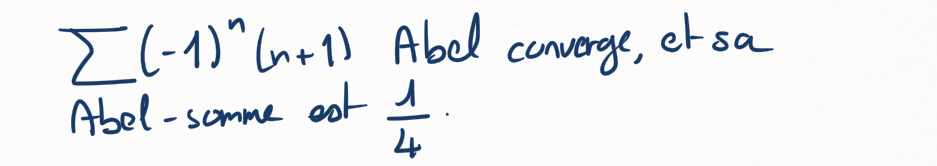 ∑(-1)ⁿ(n+1) Abel converge, et sa
Abel-somme est 1/4.